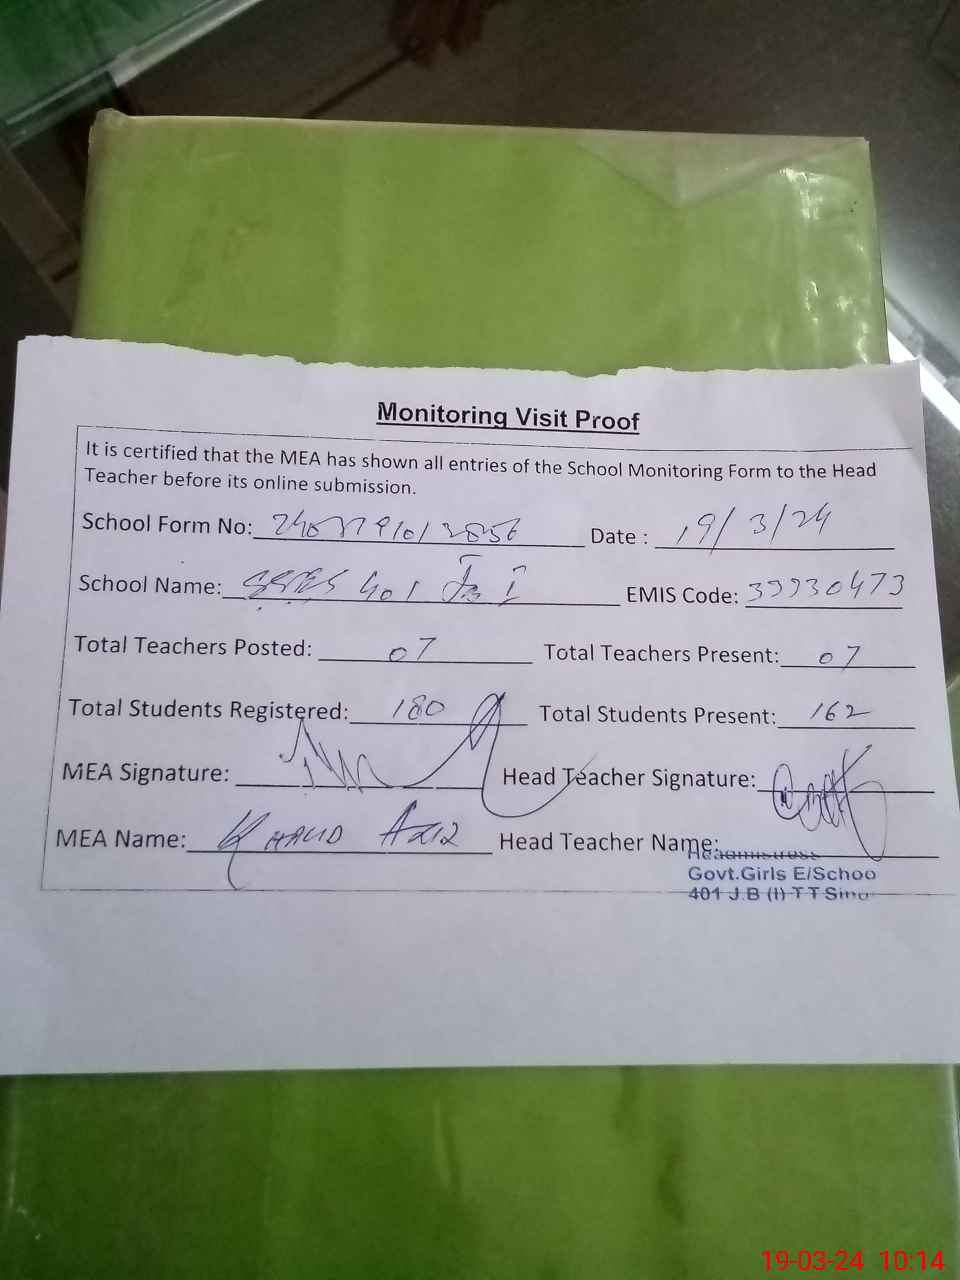 Monitoring Visit Proof
It is certified that the MEA has shown all entries of the School Monitoring Form to the Head
Teacher before its online submission.
School Form No: Date : 19/3/24
School Name: 401 JB I EMIS Code: 33330473
Total Teachers Posted: 07 Total Teachers Present: 07
Total Students Registered: 180 Total Students Present: 162
MEA Signature: Head Teacher Signature:
MEA Name: KHALID AZIZ Head Teacher Name:
Headmistress
Govt.Girls E/Schoo
401 J.B (I) T T Sing
19-03-24 10:14